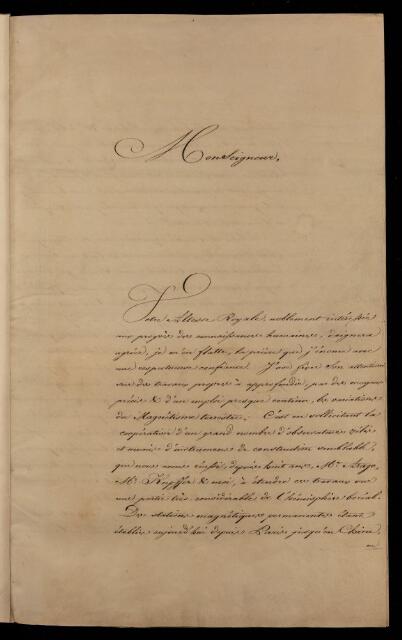 Monseigneur,
Votre Altesse Royale, noblement intéressée
aux progrès des connaissances humaines, daignera
agréer, je m'en flatte, la prière que j'énonce avec
une respectueuse confiance. J'ose fixer Son attention
sur des travaux propres à approfondir, par des moyens
précis & d'un emploi presque continu, les variations
du Magnétisme terrestre. C'est en sollicitant la
coopération d'un grand nombre d'observateurs zélés
et munis d'instrumens de construction semblable,
que nous avons réussi, depuis huit ans, Mr. Arago,
Mr. Kupffer & moi, à étendre ces travaux sur
une partie très considérable de l'hémisphère boréal.
Des stations magnétiques permanentes étant
établies aujourd'hui depuis Paris jusqu'en Chine,
en